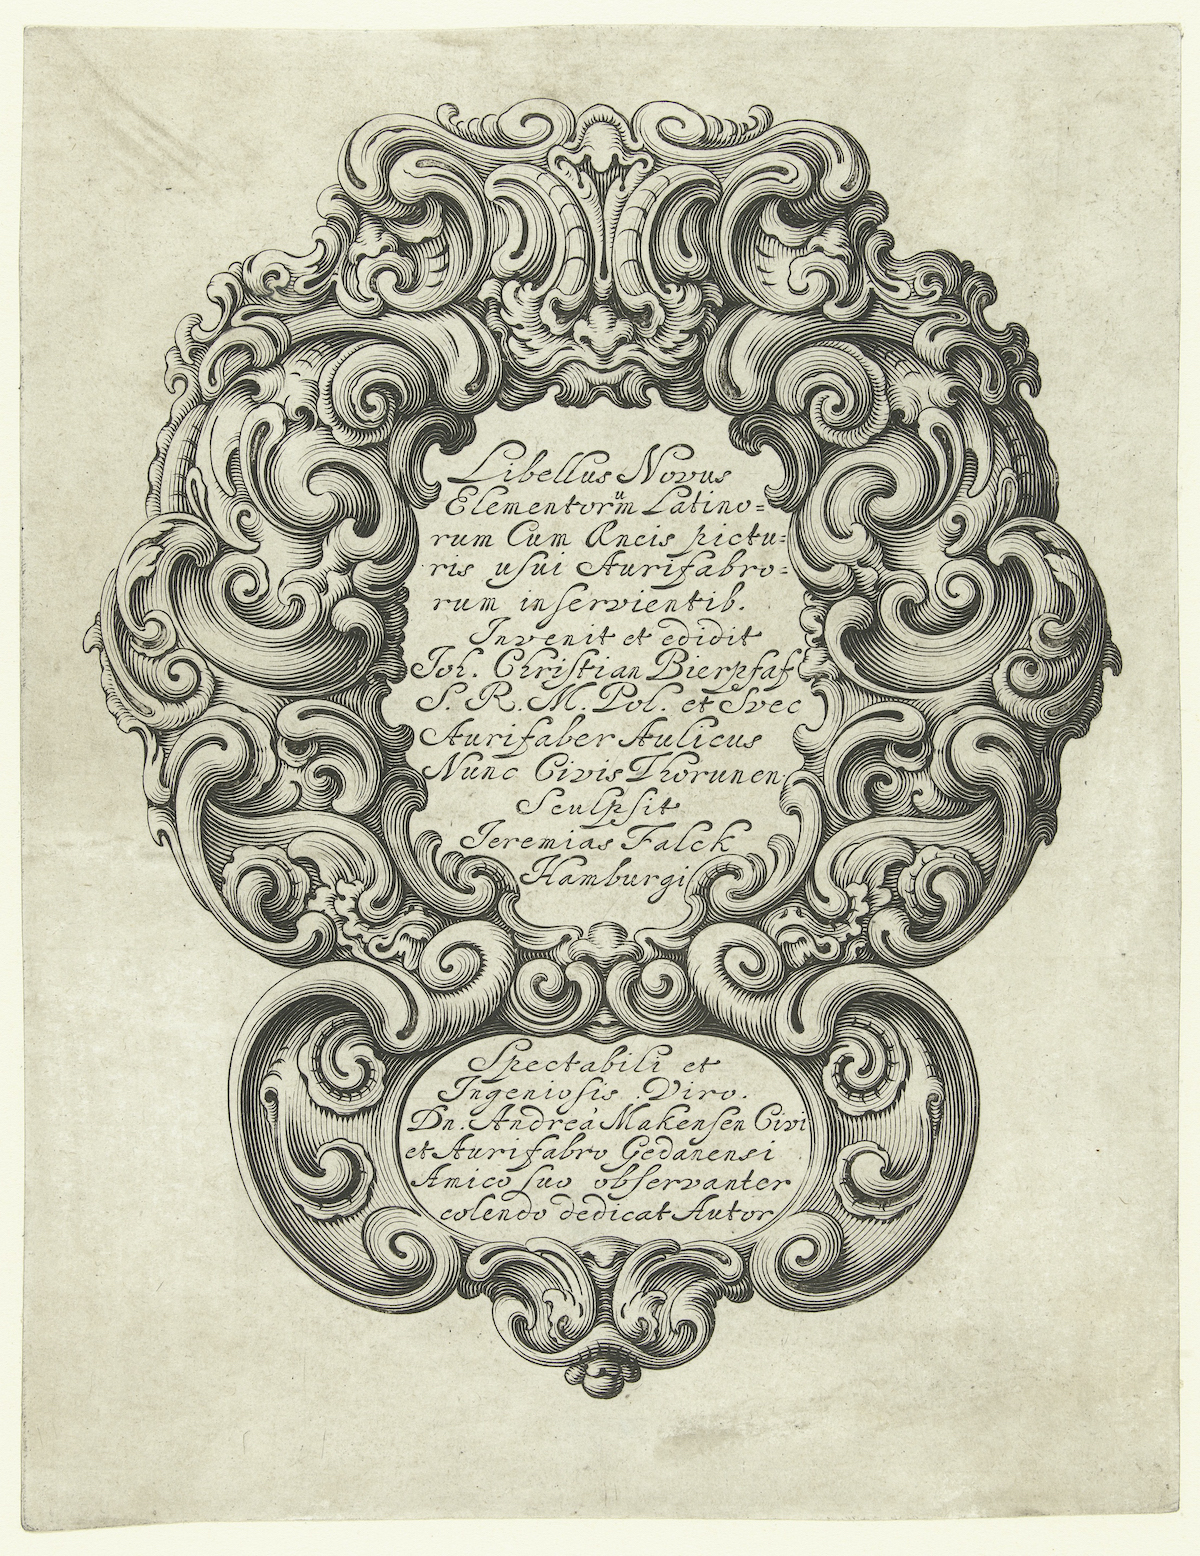 Libellus Novus
Elementorűm Latino=
rum Cum Æneis pictu=
ris uſui Aurifabro=
rum inſervientib.
Invenit et edidit
Joh. Chriſtian Bierpfaf
S. R. M. Pol. et Svec
Aurifaber Aulicus
Nunc Civis Thorunen
Sculpſit
Jeremias Falck
Hamburgi
Spectabili et
Ingenioſis Viro.
Dn. Andreà Makenſen Civi
et Aurifabro Gedanensi
Amico ſuo obſervanter
colendo dedicat Autor